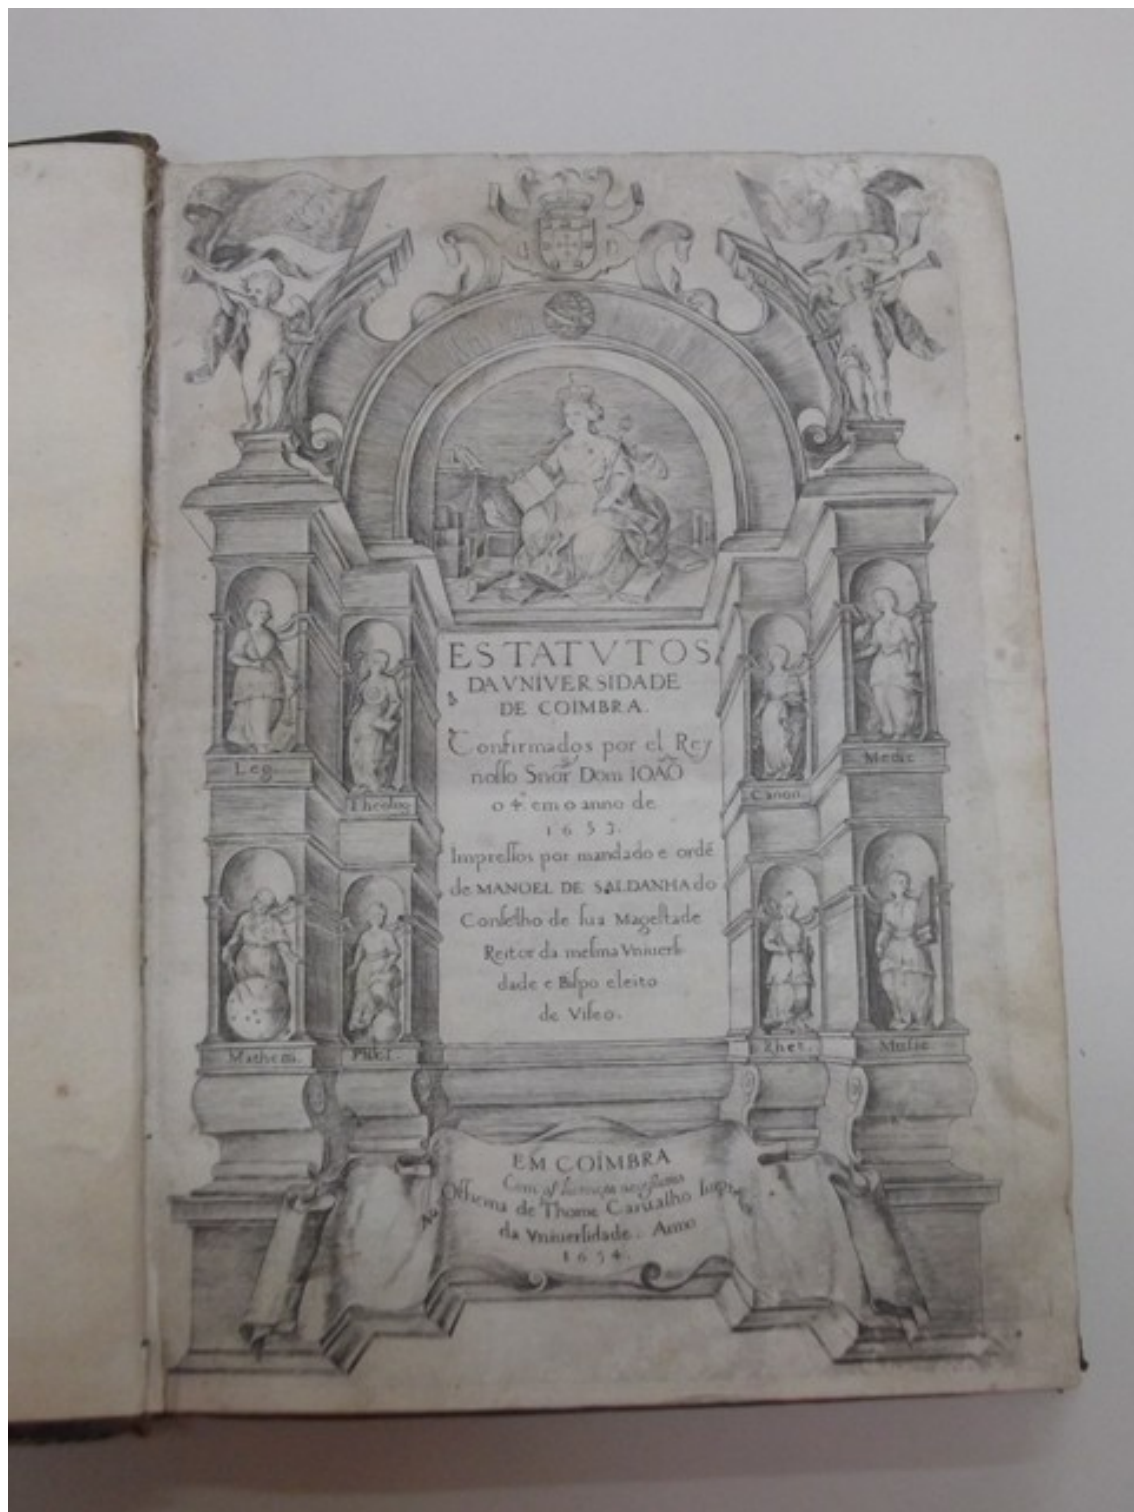 ESTATVTOS
DA VNIVERSIDADE
DE COIMBRA.
Confirmados por el Rey
nosso Snõr Dom IOAÕ
o 4º em o anno de
1653.
Impressos por mandado e ordẽ
de MANOEL DE SALDANHA do
Conselho de sua Magestade
Reitor da mesma Vniuersi
dade e Bispo eleito
de Viseo.
Leg.
Theolog
Canon.
Medic
Mathem.
Rhet.
Music
EM COIMBRA
Na Officina de Thome Carualho Impres
da Vniuersidade. Anno
1654.